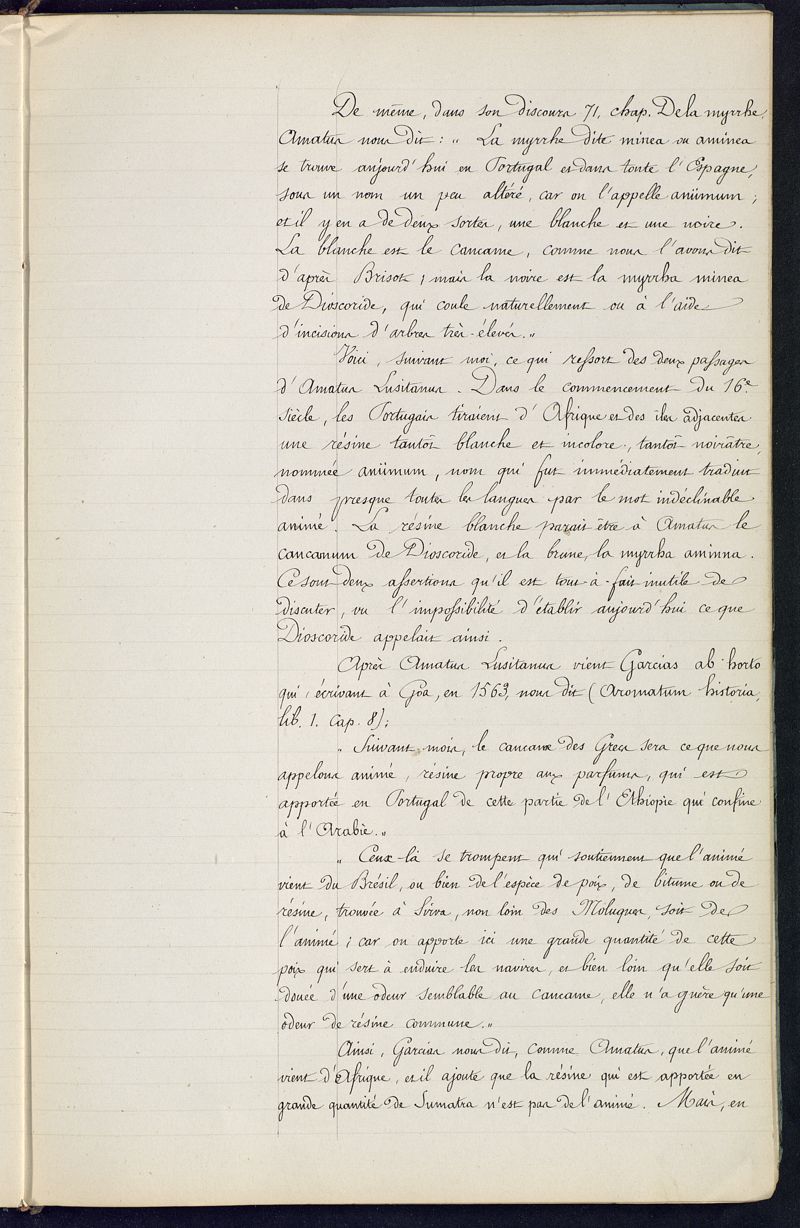 De même, dans son discours 71, chap. De la myrrhe,
Amatus nous dit : „ La myrrhe dite minea ou aminea
se trouve aujourd'hui en Portugal et dans toute l'Espagne,
sous un nom un peu altéré, car on l'appelle aniimum ;
et il y en a de deux sortes, une blanche et une noire.
La blanche est le cancame, comme nous l'avons dit
d'après Brisot ; mais la noire est la myrrha minea
de Dioscoride, qui coule naturellement ou à l'aide
d'incisions d'arbres très-élevés. „
Voici, suivant moi, ce qui ressort des deux passages
d'Amatus Lusitanus. Dans le commencement du 16e
siècle, les Portugais tiraient d'Afrique et des îles adjacentes
une résine tantôt blanche et incolore, tantôt noirâtre,
nommée aniimum, nom qui fut immédiatement traduit
dans presque toutes les langues par le mot indéclinable
animé. La résine blanche parait être à Amatus le
cancamum de Dioscoride, et la brune, la myrrha aminna.
Ce sont deux assertions qu'il est tout-à-fait inutile de
discuter, vu l'impossibilité d'établir aujourd'hui ce que
Dioscoride appelait ainsi.
Après Amatus Lusitanus vient Garcias ab horto
qui, écrivant à Goa, en 1563, nous dit (Aromatum historia,
lib. 1. Cap. 8) ;
„ Suivant mois, le cancame des Grecs sera ce que nous
appelons animé, résine propre aux parfums, qui est
apportée en Portugal de cette partie de l'Ethiopie qui confine
à l'Arabie. „
„ Ceux-là se trompent qui soutiennent que l'animé
vient du Brésil, ou bien de l'espèce de poix, de bitume ou de
résine, trouvée à Sirva, non loin des Moluques, soit de
l'animé ; car on apporte ici une grande quantité de cette
poix qui sert à enduire les navires, et bien loin qu'elle soit
douée d'une odeur semblable au cancame, elle n'a guère qu'une
odeur de résine commune. „
Ainsi, Garcias nous dit, comme Amatus, que l'animé
vient d'Afrique, et il ajoute que la résine qui est apportée en
grande quantité de Sumatra n'est pas de l'animé. Mais, en